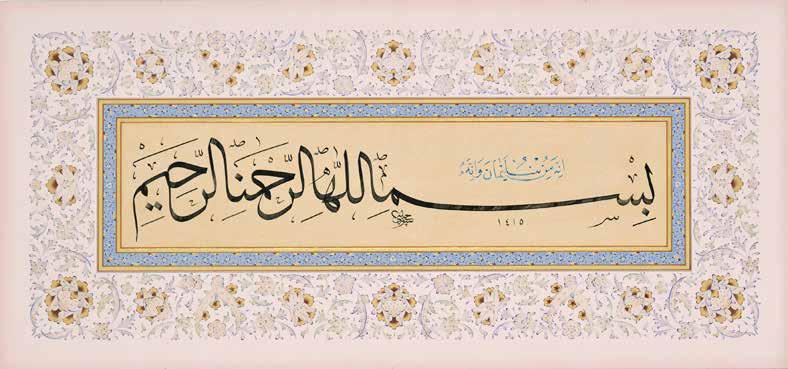 إِنَّهُ مِنْ سُلَيْمَانَ وَإِنَّهُ
بِسْمِ اللّٰهِ الرَّحْمٰنِ الرَّحِيمِ
١٤١٥